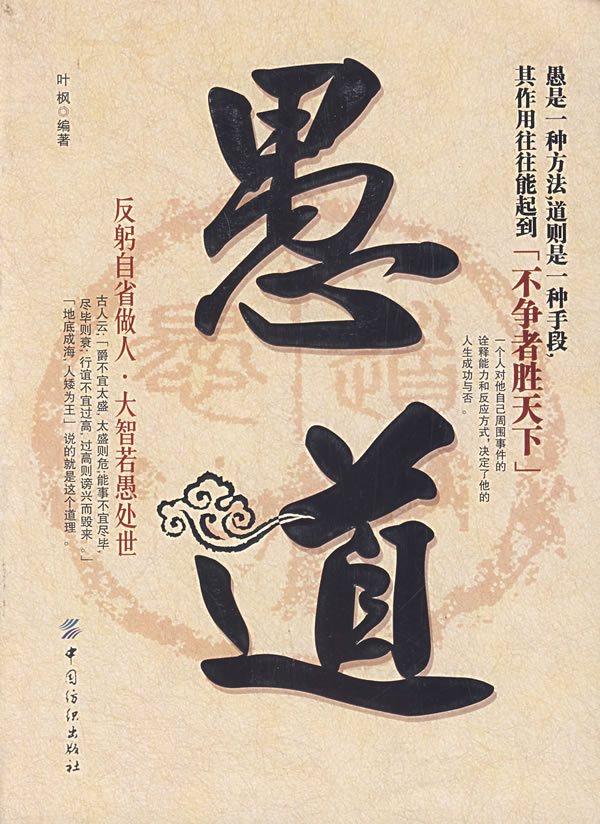 愚道
愚是一种方法,道则是一种手段,
其作用往往能起到「不争者胜天下」
一个人对他自己周围事件的
诠释能力和反应方式,决定了他的
人生成功与否。
叶枫◎编著
反躬自省做人·大智若愚处世
古人云:「爵不宜太盛,太盛则危;能事不宜尽毕,
尽毕则衰;行谊不宜过高,过高则谤兴而毁来。」
「地底成海,人矮为王」说的就是这个道理。
中国纺织出版社